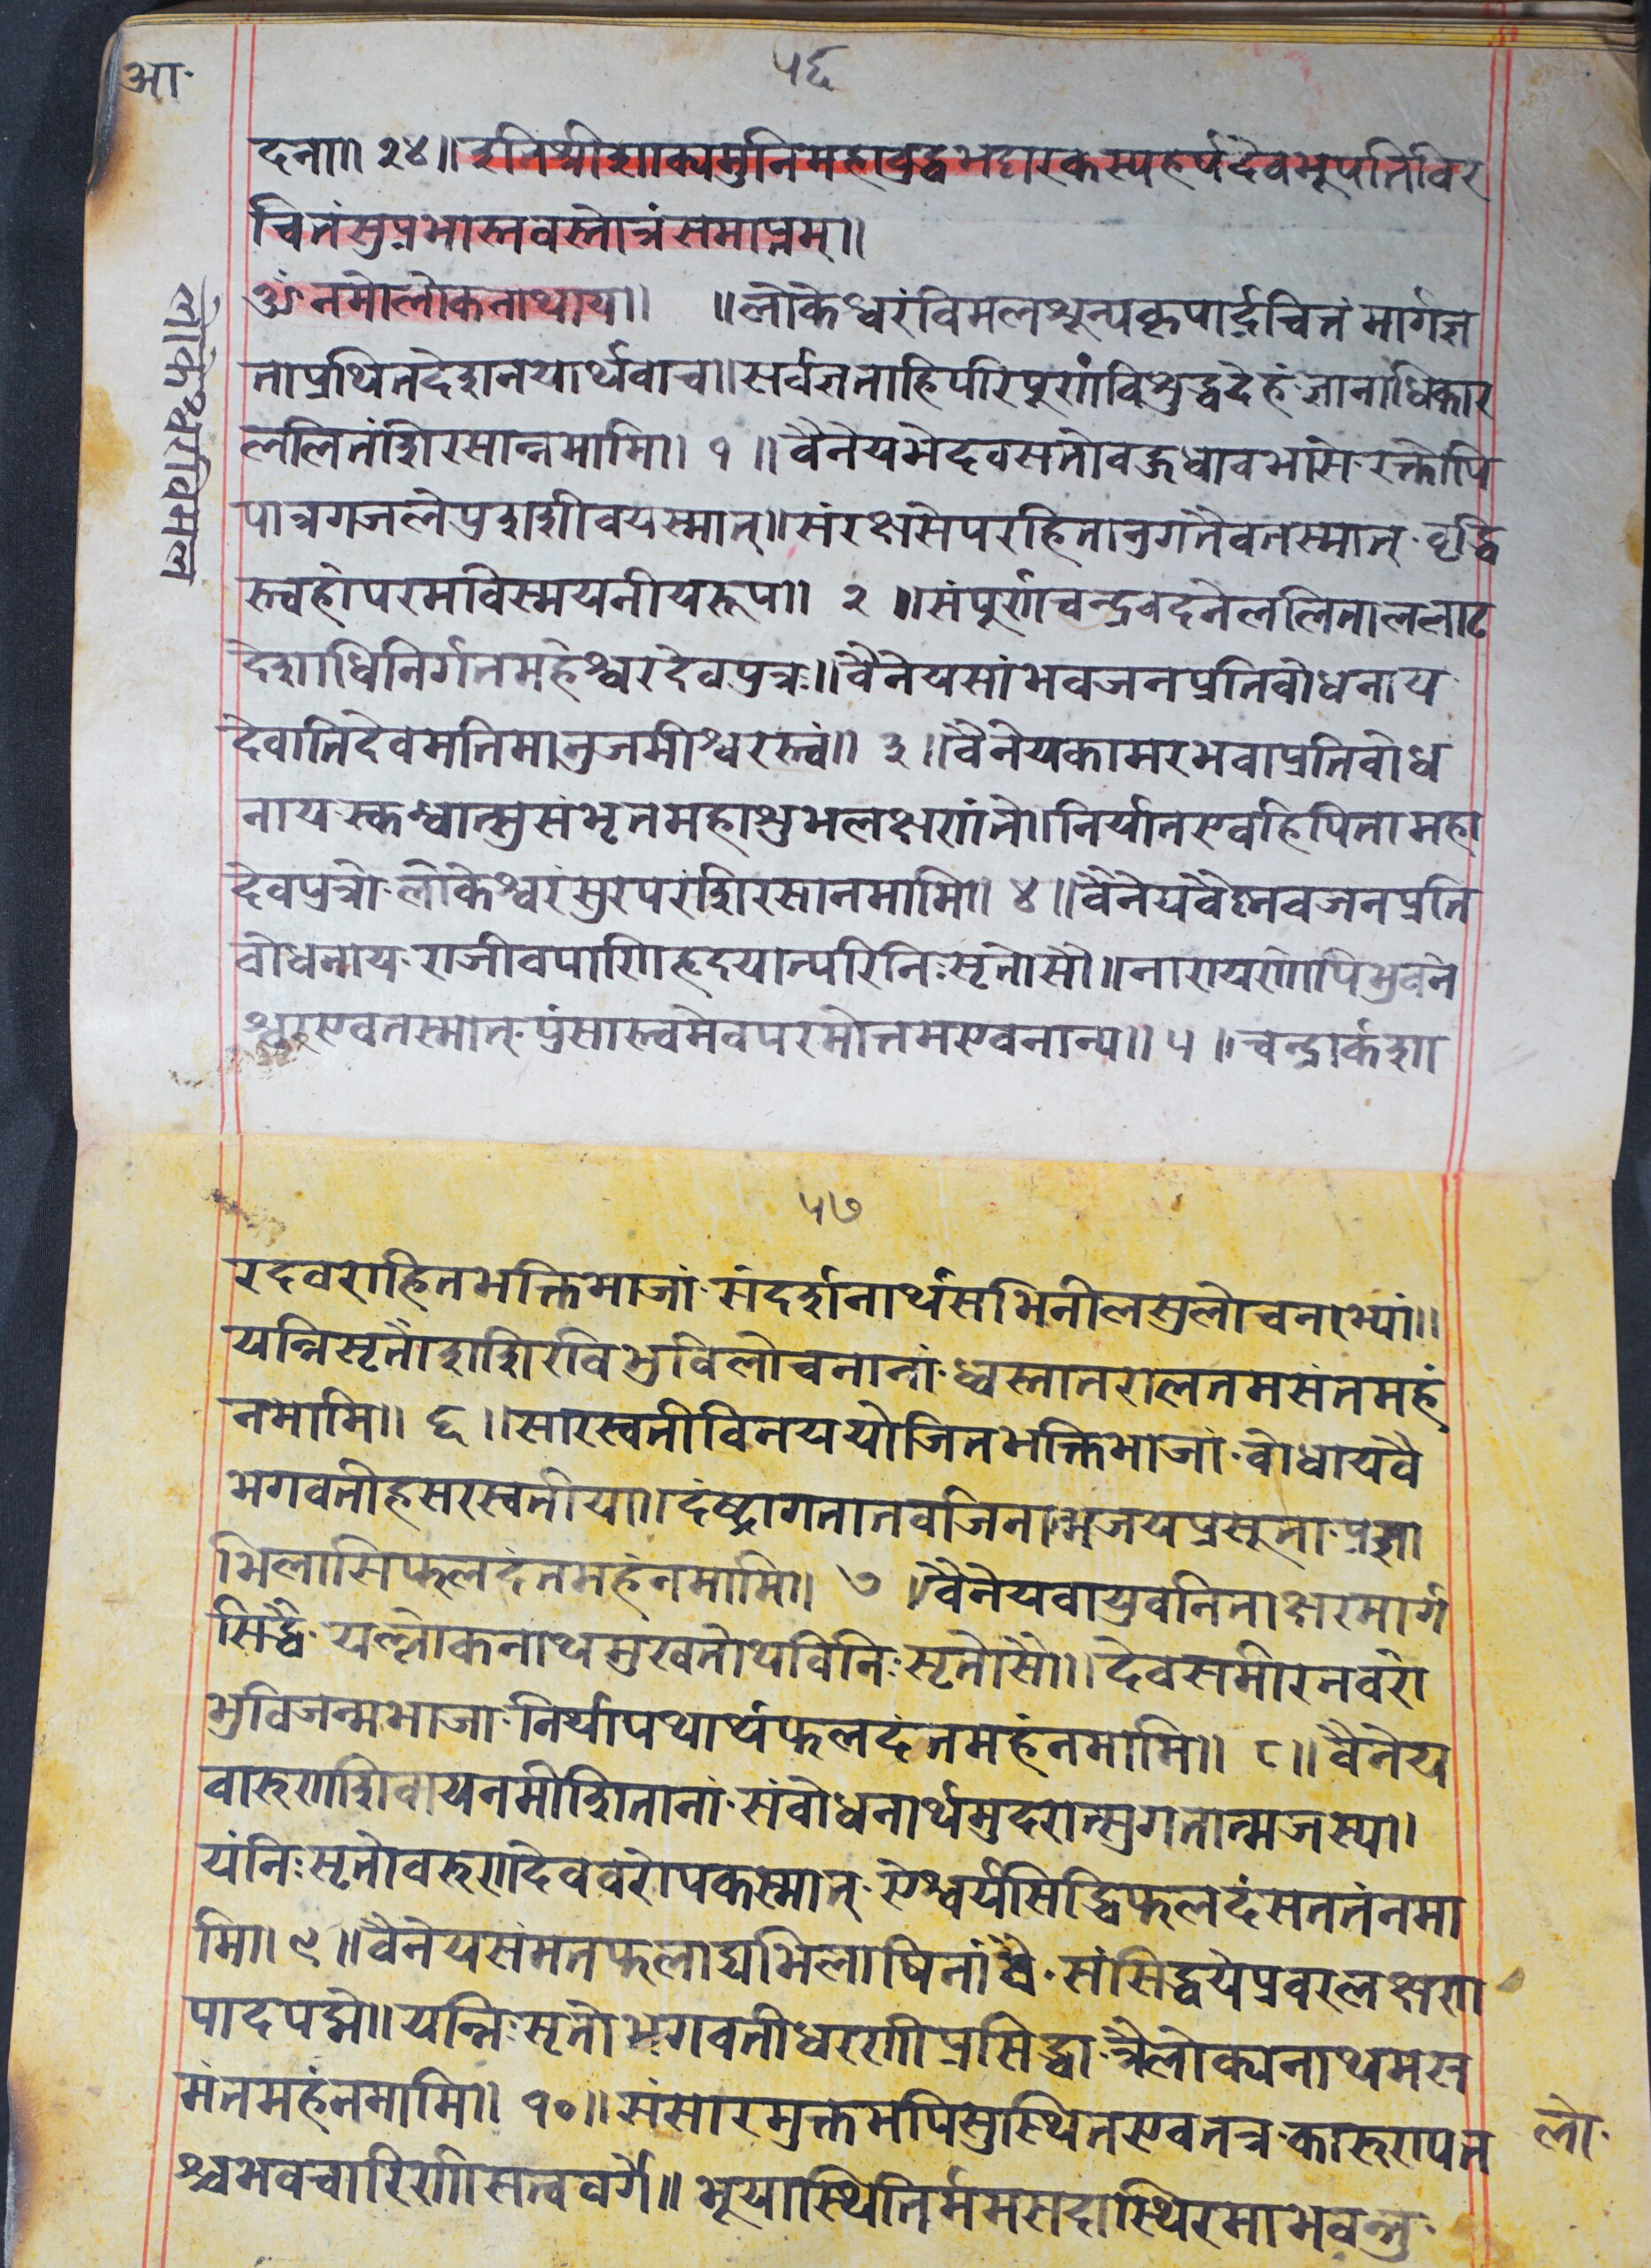 ५६
आ·
दना॥ २४॥ इतिश्रीशाक्यमुनिमहाबुद्धभट्टारकस्यहर्षदेवभूपतिविर
चितंसुप्रभास्तवस्तोत्रंसमाप्तम्॥
ॐनमोलोकनाथाय॥ ॥लोकेश्वरंविमलशून्यकृपार्द्रचित्तं मार्गज्ञ
ताप्रथितदेशनयार्थवाच॥सर्वज्ञताहिपरिपूर्णांविशुद्धदेहं·ज्ञानाधिकार
ललितंशिरसान्नमामि॥ १ ॥वैनेयभेदवसतोवद्वुधावभासे·रक्तोपि
पात्रगजलेप्रशशीवयस्मात्॥संरक्षसेपरहितानुगतैवतस्मात्·वृद्धि
स्त्वहोपरमविस्मयनीयरूप॥ २ ॥संपूर्णाचन्द्रवदनेललिताललाट
देशाधिनिर्गतमहेश्वरदेवपुत्रः॥वैनेयसांभवजनप्रतिबोधनाय
देवातिदेवमतिमानुजमीश्वरस्त्वं॥ ३ ॥वैनेयकामरभवाप्रतिबोध
नाय·स्कन्धात्सुसंभृतमहाशुभलक्षणांते॥निर्यातएवहिपितामहा
देवपुत्रो·लोकेश्वरंसुरपरंशिरसानमामि॥ ४ ॥वैनेयवैष्नवजनप्रति
बोधनाय·राजीवपाणिहृदयात्परिनिःसृतोसौ॥नारायणोपिभुवने
श्वरएवतस्मात्·पुंसास्त्वमेवपरमोत्तमएवनान्य॥ ५ ॥चन्द्रार्कशा
लोकेश्वरंविमल
५७
रदवरोहितभक्तिमाजां·संदर्शनार्थसभिनीलसुलोचनाभ्यां॥
यन्निसृतौशशिरविभुविलोचनानां·ध्वस्तातरालतमसंतमहं
नमामि॥ ६ ॥सारस्वतीविनययोजितभक्तिभाजां·बोधायवै
भगवतीहसरस्वतीया॥दंष्ट्रागतातवजिनात्मजयप्रसूता·प्रज्ञा
भिलासिफलदंतमहंनमामि॥ ७ ॥वैनेयवायुवनिताक्षरमार्ग
सिद्धै·यल्लोकनाथमुखतोथविनिःसृतोसौ॥देवसमीरनवरो
भुविजन्मभाजा·निर्यापथार्थफलदंतमहंनमामि॥ ८॥ वैनेय
वारुणशिवायनमीशितानां·संबोधनार्थमुदरात्सुगतात्मजस्य॥
यंनिःसृतोवरुणदेववरोपकस्मात्·एश्वर्यसिद्धिफलदंसततंनमा
मि॥ ९ ॥वैनेयसंमतफलाद्यभिलाषिनां वै·संसिद्धयेप्रवरलक्षण
पादपद्मे॥यन्निःसृतोभगवतीधरणीप्रसिद्धा·त्रैलोक्यनाथमस
मंतमहंनमामि॥ १०॥संसारमुक्तमपिसुस्थितएवतत्र·कारुण्यत
श्चभवचारिणिसत्ववर्गे॥ भूयास्थितिर्ममसदास्थिरमाभवन्तु·
लो·